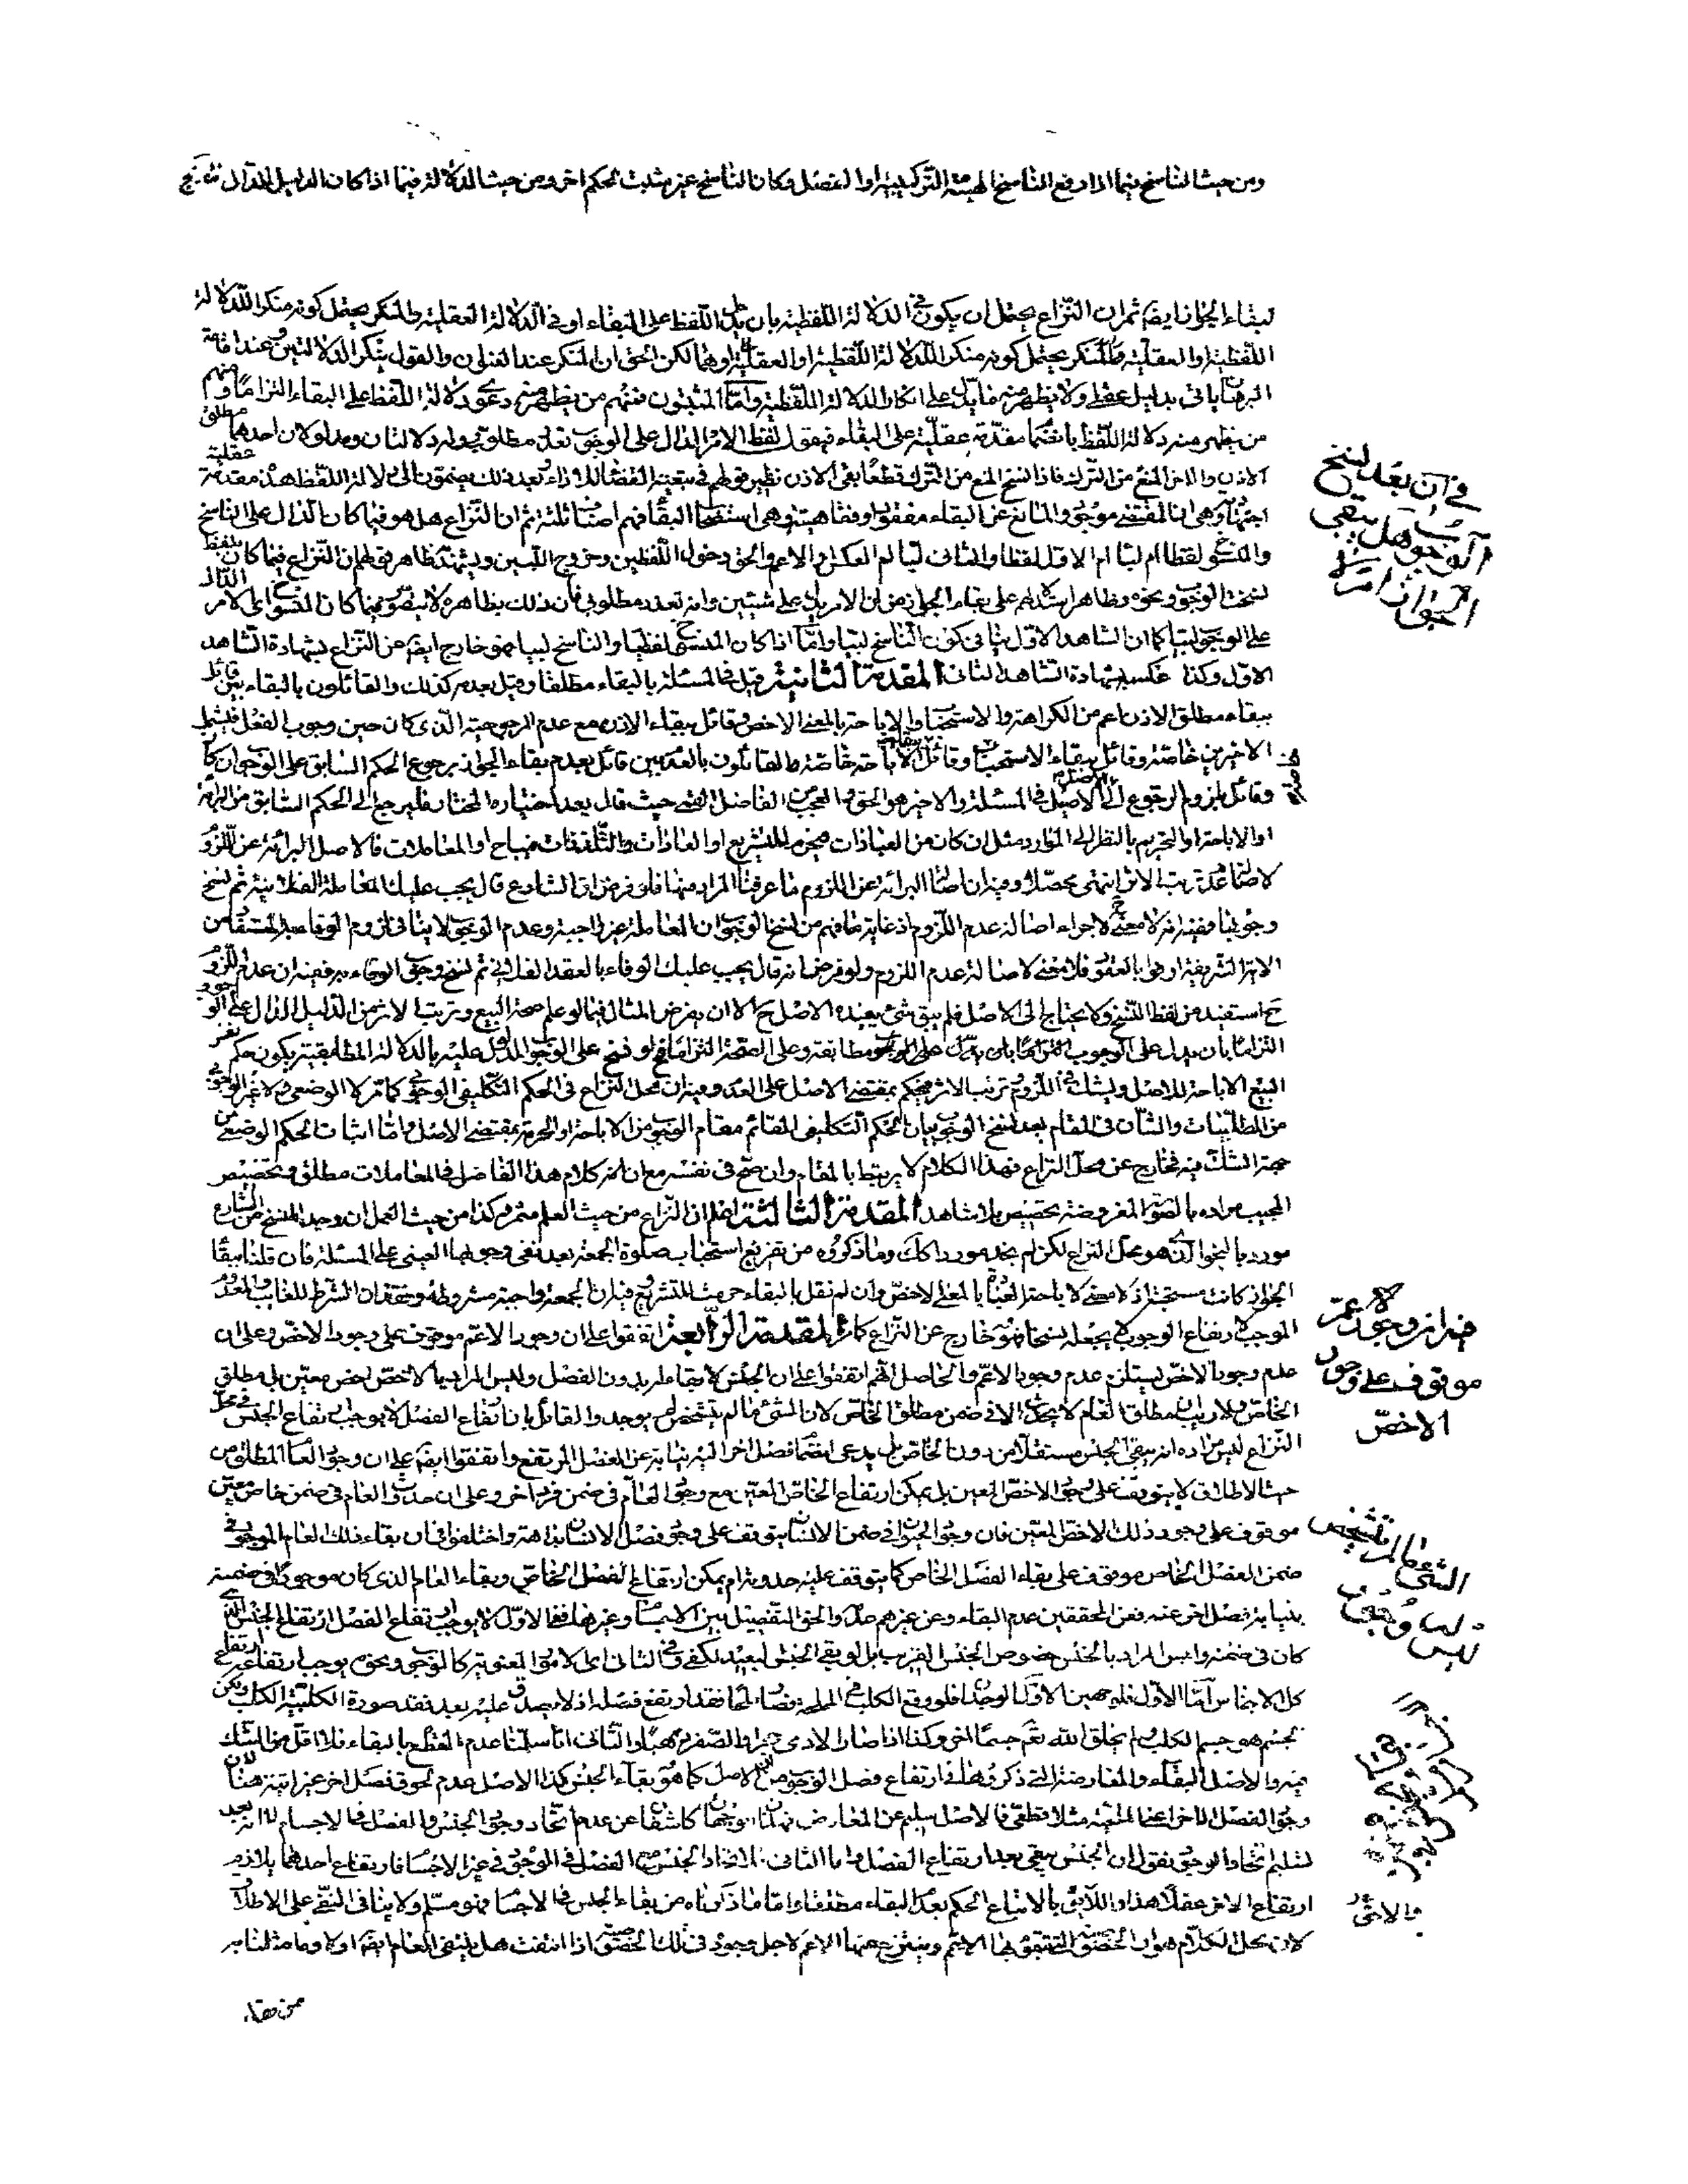 ومن حيث الناسخ فيما اذا رفع الناسخ الهيئة التركيبية او الفصل وكان الناسخ غير مثبت لحكم اخر ومن حيث الدلالة فيما اذا كان الدليل الدال
ببقاء الجواز ايضا ثم ان النزاع يحتمل ان يكون في الدلالة اللفظية بان يدل اللفظ على البقاء او في الدلالة العقلية والمنكر يحتمل كونه منكرا للدلالة
اللفظية او العقلية والمنكر يحتمل كونه منكر الدلالة اللفظية او العقلية او هما لكن الحق ان المنكر عند العنوان والقول ينكر الدلالتين وعند اقامة
البرهان ياتى بدليل عقلى ولا يظهر منه ما يدل على انكار الدلالة اللفظية واما المثبتون فمنهم من يظهر منه دعوى دلالة اللفظ على البقاء التزاما ومنهم
من يظهر منه دلالة اللفظ بانضمام مقدمة عقلية على البقاء فيقول لفظ الامر الدال على الوجوب تعدد مطلوبى وله دلالتان ومدلولان احدهما مطلق
الاذن والاخر المنع من الترك فاذا نسخ المنع من الترك قطعا بقى الاذن نظير قولهم في تبعية القضاء للاداء وبعد ذلك يضمون الى دلالة اللفظ هذه مقدمة عقلية
اجتهاد وهى ان المقتضى موجود والمانع عن البقاء مفقود وفقاهية وهى استصحاب البقاء فهم اصناف ثلثة ثم ان النزاع هل هو فيما كان الدال على الناسخ
والمنسوخ لفظا ام لبا ام الاول لفظا والثانى لبا ام العكس او الاعم والحق دخول اللفظين وخروج اللبيين ويشهد ظاهر قولهم ان النزاع فيما كان بلفظ
نسخت الوجوب ونحوه وظاهر استدلالهم على بقاء الجواز من ان الامر يدل على شيئين وانه تعدد مطلوبى فان ذلك بظاهره لا يتصور فيما كان المنسوخ اى الامر الدال
على الوجوب لبيا كما ان الشاهد الاول ينافى كون الناسخ لبيا واما اذا كان المنسوخ لفظيا والناسخ لبيا فهو خارج ايضا عن النزاع بشهادة الشاهد
الاول وكذا عكسه بشهادة الشاهد الثانى المقدمة الثانية قيل في المسئلة بالبقاء مطلقا وقيل بعدم كذلك والقائلون بالبقاء بين قائل
ببقاء مطلق الاذن اعم من الكراهة والاستحباب والاباحة بالمعنى الاخص وقائل ببقاء الاذن مع عدم المرجوحية الذى كان حين وجوب الفعل فيشمل
الاخيرين خاصة وقائل ببقاء الاستحباب وقائل ببقاء الاباحة خاصة والقائلون بالعدم بين قائل بعدم بقاء الجواز برجوع الحكم السابق على الوجوب ان كان
وقائل بلزوم الرجوع الى الاصل في المسئلة والاخير هو الحق والعجب من الفاضل القمى حيث قال بعد اختياره المختار فليرجع الى الحكم السابق من البرائة
او الاباحة او التحريم بالنظر الى الموارد مثل ان كان من العبادات فيحرم للتشريع او العادات والتلذذات فمباح او المعاملات فالاصل البرائة عن اللزوم
لاصالة عدم ترتب الاثر انتهى محصله وفيه ان اصالة البرائة عن اللزوم ما عرفنا المراد منها فلو فرض ان الشارع قال يجب عليك المعاملة الفلانية ثم نسخ
وجوبها ففيه انه لا معنى ح لاجراء اصالة عدم اللزوم اذ غاية ما فهم من نسخ الوجوب ان المعاملة غير واجبة وعدم الوجوب لا ينافى لزوم الوفاء به المستفاد من
الاية الشريفة اوفوا بالعقود فلا معنى لاصالة عدم اللزوم ولو فرض انه قال يجب عليك الوفاء بالعقد الفلانى ثم نسخ وجوب الوفاء به ففيه ان عدم اللزوم
ح استفيد من لفظ النسخ ولا يحتاج الى الاصل فلم يبق شئ يفيده الاصل ح الا ان يفرض المثال فيما لو علم صحة البيع وترتب الاثر من الدليل الدال على الوجوب
البيع الاباحة للاصل ويشك في اللزوم وترتب الاثر فيحكم بمقتضى الاصل على العدم وفيه ان محل النزاع في الحكم التكليفى الوجوبى كما مر لا الوضعى ولا غير الوجوبى
من الطلبيات والشان في المقام بعد نسخ الوجوب بيان الحكم التكليفى القائم مقام الوجوب من الاباحة او الحرمة بمقتضى الاصل واما اثبات الحكم الوضعى من
جهة الشك فيه فخارج عن محل النزاع فهذا الكلام لا يرتبط بالمقام وان صح في نفسه مع ان كلام هذا الفاضل في المعاملات مطلق وتخصيص
المجيب مراده بالصورة المفروضة تخصيص بلا شاهد المقدمة الثالثة اعلم ان النزاع من حيث العلم مثمر وكذا من حيث العمل ان وجد النسخ من الشارع
موردا بالنحو الذى هو محل النزاع لكن لم نجد موردا كك وما ذكروه من تفريع استحباب صلوة الجمعة بعد نفى وجوبها العينى على المسئلة فان قلنا ببقاء
الجواز كانت مستحبة اذ لا معنى لاباحة العبادة بالمعنى الاخص وان لم نقل بالبقاء حرمت للتشريع فيه ان الجمعة واجبة مشروطة وفقدان الشرط للغايب والمعدوم
الموجب لارتفاع الوجوب لا يجعله نسخا فهو خارج عن النزاع كما مر المقدمة الرابعة اتفقوا على ان وجود الاعم موقوف على وجود الاخص وعلى ان
عدم وجود الاخص يستلزم عدم وجود الاعم والحاصل انهم اتفقوا على ان الجنس لا بقاء له بدون الفصل وليس المراد بالاخص اخص معين بل مطلق
الخاص ولا ريب ان مطلق العام لا يوجد الا في ضمن مطلق الخاص لان الشئ ما لم يتشخص لم يوجد والقائل بان ارتفاع الفصل لا يوجب ارتفاع الجنس في محل
النزاع ليس مراده انه يبقى الجنس مستقلا من دون الخاص بل يدعى انضمام فصل اخر اليه نيابة عن الفصل المرتفع واتفقوا ايضا على ان وجود العام المطلق من
حيث الاطلاق لا يتوقف على وجود الاخص المعين بل يمكن ارتفاع الخاص المعين مع وجود العام في ضمن فرد اخر وعلى ان حدوث العام في ضمن خاص معين
موقوف على وجود ذلك الاخص المعين فان وجود الحيوان في ضمن الانسان يتوقف على وجود فصل الانسان بداهة واختلفوا في ان بقاء ذلك العام الموجود في
ضمن الفصل الخاص موقوف على بقاء الفصل الخاص كما يتوقف عليه حدوثه ام يمكن ارتفاع الفصل الخاص وبقاء العام الذى كان موجودا في ضمنه
بنيابة فصل اخر عنه فعن المحققين عدم البقاء وعن غيرهم خلافه والحق التفصيل بين الاجسام وغيرها ففى الاول لا يوجب ارتفاع الفصل ارتفاع الجنس الذى
كان في ضمنه وليس المراد بالجنس خصوص الجنس القريب بل لو بقى الجنس البعيد لكفى وفى الثانى اى الامور المعنوية كالوجوب ونحوه يوجب ارتفاعه ارتفاع
كل الاجناس اما الاول فله حصة الاول الوجدان فلو وقع الكلب في المملحة وصار ملحا فقد ارتفع فصله اذ لا يصدق عليه بعد فقد صورة الكلبية الكلب ولكن
الجسم هو جسم الكلب لم يخلق الله تعالى جسما اخر وكذا اذا صار الادمى حجرا والصفر ذهبا والثانى انا سلمنا عدم القطع بالبقاء فلا اقل من الشك
فيه والاصل البقاء والمعارضة التى ذكروها في ارتفاع فصل الوجوب من ان الاصل كما هو بقاء الجنس كذا الاصل عدم لحوق فصل اخر غير اتية هنا لان
وجود الفصل الاخر اعنى الملحية مثلا قطعى فالاصل سليم عن المعارض
لتسليم اتحاد الوجود نقول ان الجنس يبقى بعد ارتفاع الفصل واما الثانى فلاتحاد الجنس مع الفصل في الوجود في غير الاجسام فارتفاع احدهما يلازم
ارتفاع الاخر عقلا هذا واللايق بالاتباع الحكم بعدم البقاء مطلقا واما ما ذكرناه من بقاء الجنس في الاجسام فهو مسلم ولا ينافى النفى على الاطلاق
لان محل الكلام هو ان الحصة التى تقوم بها الاعم وينتزع عنها الاعم لاجل وجوده في ذلك الحصة اذا انتفت هل ينتفى العام ايضا اولا وما مثلنا به
في ان بعد نسخ
الوجوب هل يبقى
الجواز ام لا
في ان وجود الاعم
موقوف على وجود
الاخص
الشئ ما لم يتشخص
لم يوجد